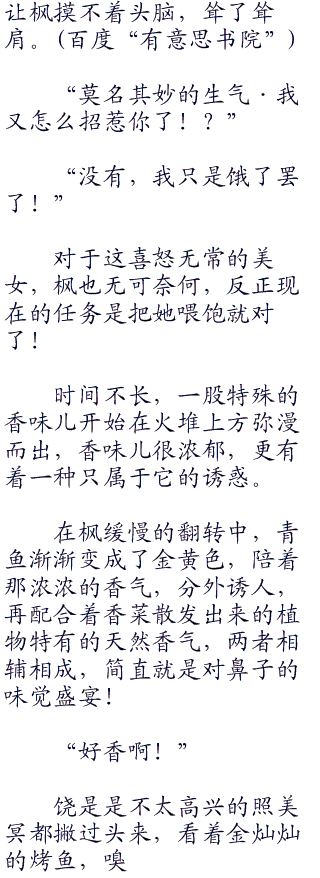 让枫摸不着头脑，耸了耸
肩。(百度“有意思书院”)
“莫名其妙的生气·我
又怎么招惹你了！？”
“没有，我只是饿了罢
了！”
对于这喜怒无常的美
女，枫也无可奈何，反正现
在的任务是把她喂饱就对
了！
时间不长，一股特殊的
香味儿开始在火堆上方弥漫
而出，香味儿很浓郁，更有
着一种只属于它的诱惑。
在枫缓慢的翻转中，青
鱼渐渐变成了金黄色，陪着
那浓浓的香气，分外诱人，
再配合着香菜散发出来的植
物特有的天然香气，两者相
辅相成，简直就是对鼻子的
味觉盛宴！
“好香啊！”
饶是是不太高兴的照美
冥都撇过头来，看着金灿灿
的烤鱼，嗅